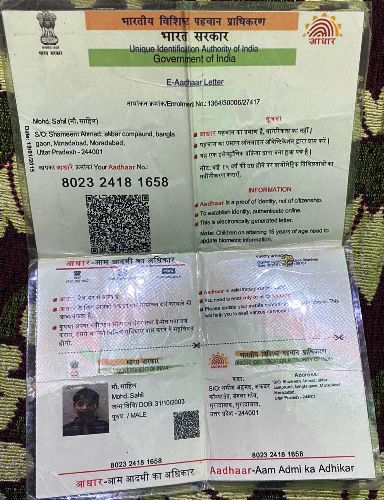 भारतीय विशिष्ट पहचान प्राधिकरण
भारत सरकार
Unique Identification Authority of India
Government of India
E-Aadhaar Letter
नामांकन क्रमांक/Enrolment No.: 1364/30006/27417
Mohd. Sahil (मौ. साहिल)
S/O: Shameem Ahmad, akbar compaund, bangla
gaon, Moradabad, Moradabad,
Uttar Pradesh - 244001
आपका आधार क्रमांक/Your Aadhaar No.:
8023 2418 1658
सूचना
आधार पहचान का प्रमाण है, नागरिकता का नहीं।
पहचान का प्रमाण ऑनलाइन ऑथेन्टिकेशन द्वारा प्राप्त करें।
यह एक इलेक्ट्रॉनिक प्रक्रिया द्वारा बना हुआ पत्र है।
INFORMATION
Aadhaar is a proof of identity, not of citizenship.
To establish identity, authenticate online.
This is electronically generated letter.
Note: Children on attaining 15 years of age need to
update biometric information.
आधार-आम आदमी का अधिकार
आधार देश भर में मान्य है।
Aadhaar is valid throughout the
You need to enrol only once
Please update your mobile
will help you to avail various services
भारत सरकार
मौ. साहिल
Mohd. Sahil
जन्म तिथि/ DOB: 31/10/2003
पुरुष / MALE
8023 2418 1658
आधार-आम आदमी का अधिकार
भारतीय विशिष्ट पहचान प्राधिकरण
पता:
S/O: शमीम अहमद, अकबर
कम्पाउंड, बंगला गांव,
मुरादाबाद, मुरादाबाद,
उत्तर प्रदेश - 244001
Address:
S/O: Shameem Ahmad, akbar
compaund, bangla gaon, Moradabad,
Moradabad,
Uttar Pradesh - 244001
8023 2418 1658
Aadhaar-Aam Admi ka Adhikar